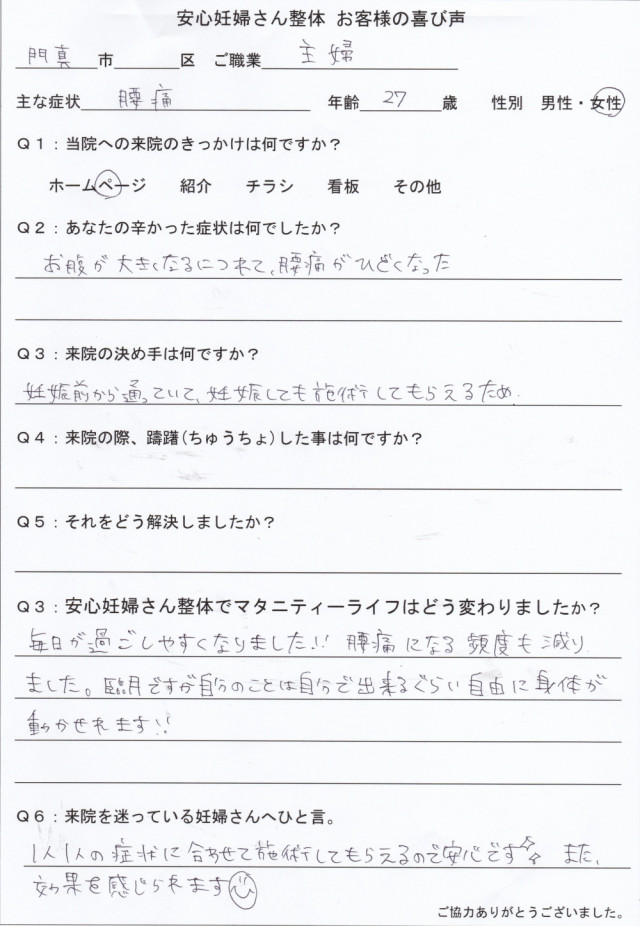 安心妊婦さん整体 お客様の喜び声
門真市 区 ご職業 主婦
主な症状 腰痛 年齢 27 歳 性別 男性・女性
Q1：当院への来院のきっかけは何ですか？
ホームページ 紹介 チラシ 看板 その他
Q2：あなたの辛かった症状は何でしたか？
お腹が大きくなるにつれて、腰痛がひどくなった
Q3：来院の決め手は何ですか？
妊娠前から通っていて、妊娠しても施術してもらえるため.
Q4：来院の際、躊躇(ちゅうちょ)した事は何ですか？
Q5：それをどう解決しましたか？
Q3：安心妊婦さん整体でマタニティーライフはどう変わりましたか？
毎日が過ごしやすくなりました!! 腰痛になる頻度も減り
ました。臨月ですが自分のことは自分で出来るぐらい自由に身体が
動かせれます!!
Q6：来院を迷っている妊婦さんへひと言。
1人1人の症状に合わせて施術してもらえるので安心です また、
効果を感じられます
ご協力ありがとうございました。